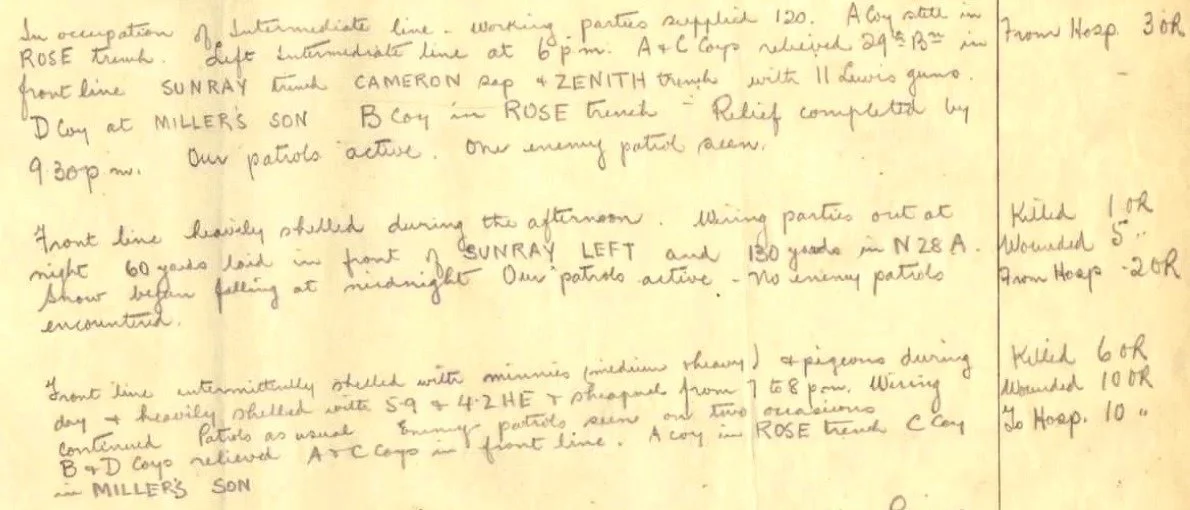 In occupation of Intermediate line. Working parties supplied 120. A Coy still in
ROSE trench. Left Intermediate line at 6 p.m. A & C Coys relieved 29th Bn in
front line SUNRAY trench CAMERON sap & ZENITH trench with 11 Lewis guns.
D Coy at MILLER'S SON B Coy in ROSE trench - Relief completed by
9.30 p.m. Our patrols active. One enemy patrol seen.
From Hosp. 3 OR
Front line heavily shelled during the afternoon. Wiring parties out at
night 60 yards laid in front of SUNRAY LEFT and 130 yards in N 28 A.
Snow began falling at midnight Our patrols active - No enemy patrols
encountered.
Killed 1 OR
Wounded 5 "
From Hosp - 2 OR
Front line intermittently shelled with minnies (medium & heavy) & pigeons during
day & heavily shelled with 5.9 & 4.2 HE & shrapnel from 7 to 8 p.m. Wiring
continued Patrols as usual Enemy patrols seen on two occasions
B & D Coys relieved A & C Coys in front line. A Coy in ROSE trench C Coy
in MILLER'S SON
Killed 6 OR
Wounded 10 OR
To Hosp. 10 "